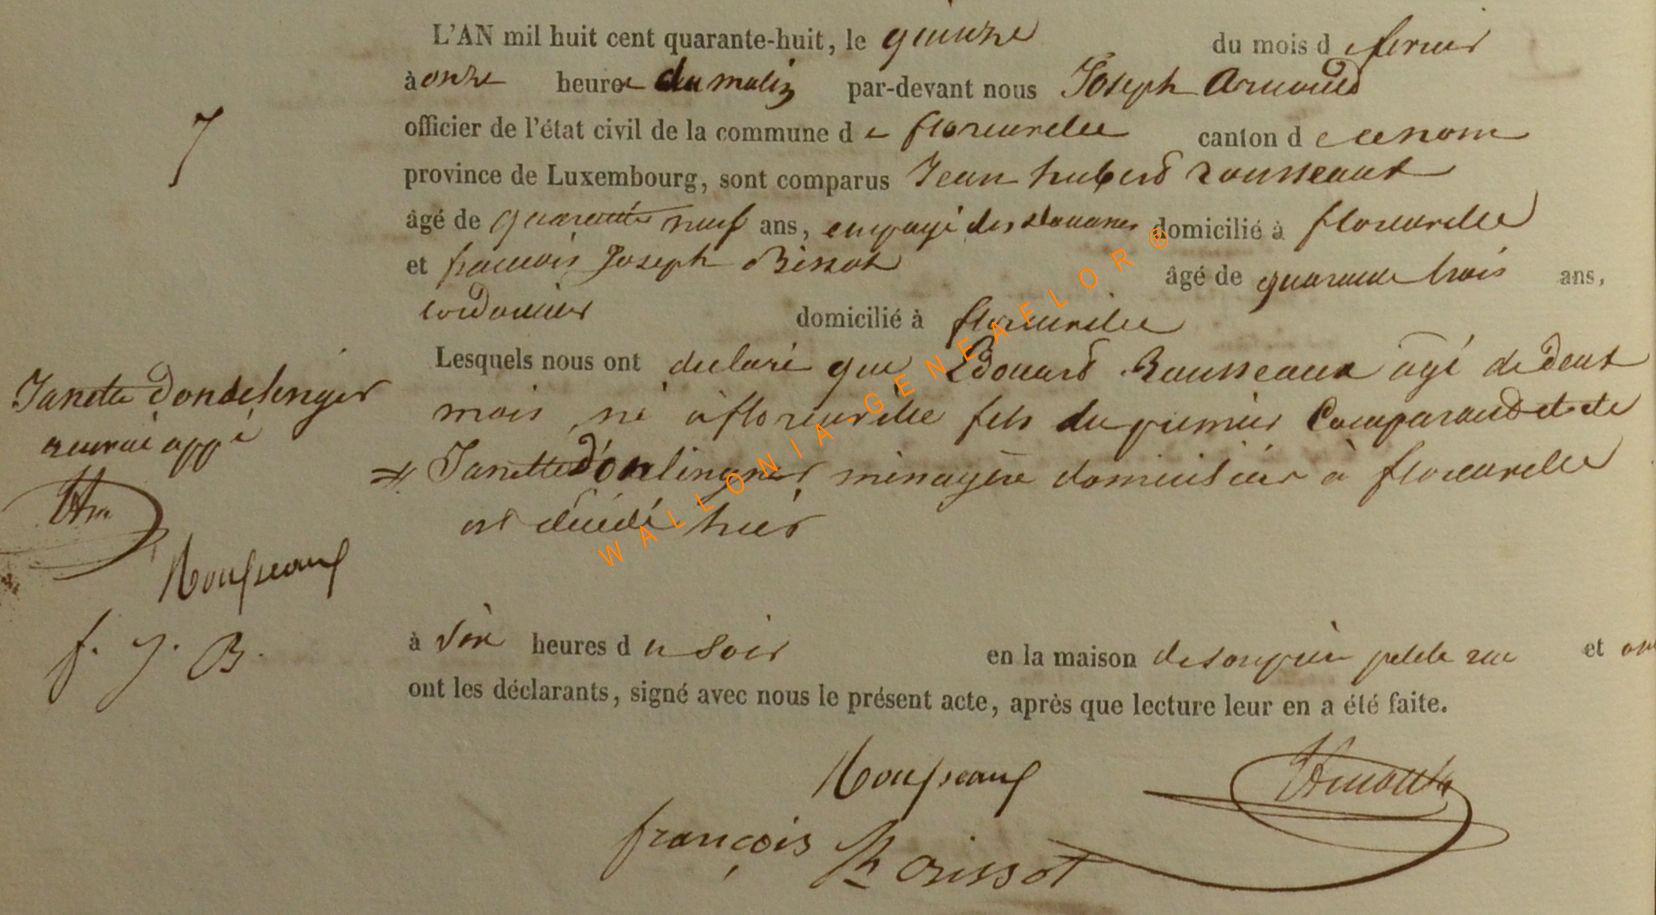 L'AN mil huit cent quarante-huit, le quinze du mois de fevrier
à onze heures du matin par-devant nous Joseph Arnould
officier de l'état civil de la commune de florenville canton de
province de Luxembourg, sont comparus Jean hubert rousseaux
âgé de quarante neuf ans, employé des douanes domicilié à florenville
et francois Joseph Bissot âgé de quarante trois ans,
cordonnier domicilié à florenville
Lesquels nous ont declaré que Edouard Rousseaux agé de deux
mois, né à florenville fils du premier Comparant et de
Janette Donlinger ménagère domiciliés à florenville
est décédé hier
à six heures du soir en la maison de son père petite rue et ont
ont les déclarants, signé avec nous le présent acte, après que lecture leur en a été faite.
7
Janette Dondelenger
renvoi appé
Rousseaux
f. J. B.
Rousseaux
Arnould
françois Boissot
WALLONIA GENEAFLOR ®